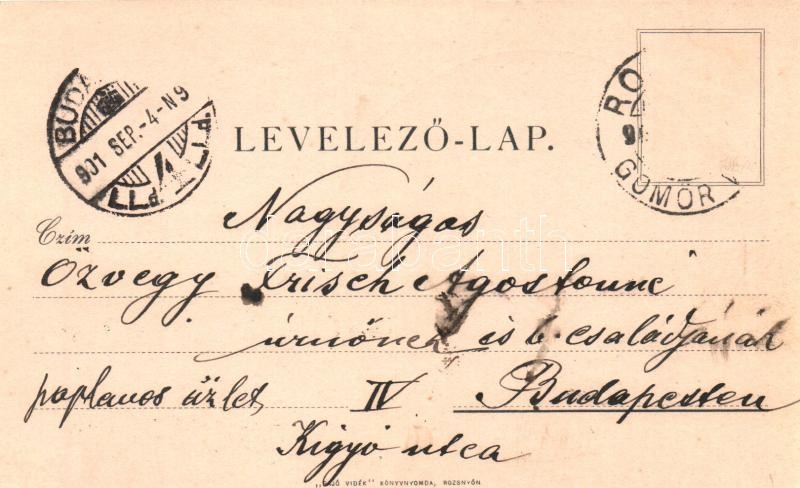 BUDA
901 SEP.-4-N9
P.T.T.
RO
GÖMÖR
LEVELEZŐ-LAP.
Czím Nagyságos
Özvegy Frisch Ágostonné
úrnőnek és b. családjának
paplanos üzlet IV Budapesten
Kígyó utca
„SAJÓ VIDÉK" KÖNYVNYOMDA, ROZSNYÓN
darabanth